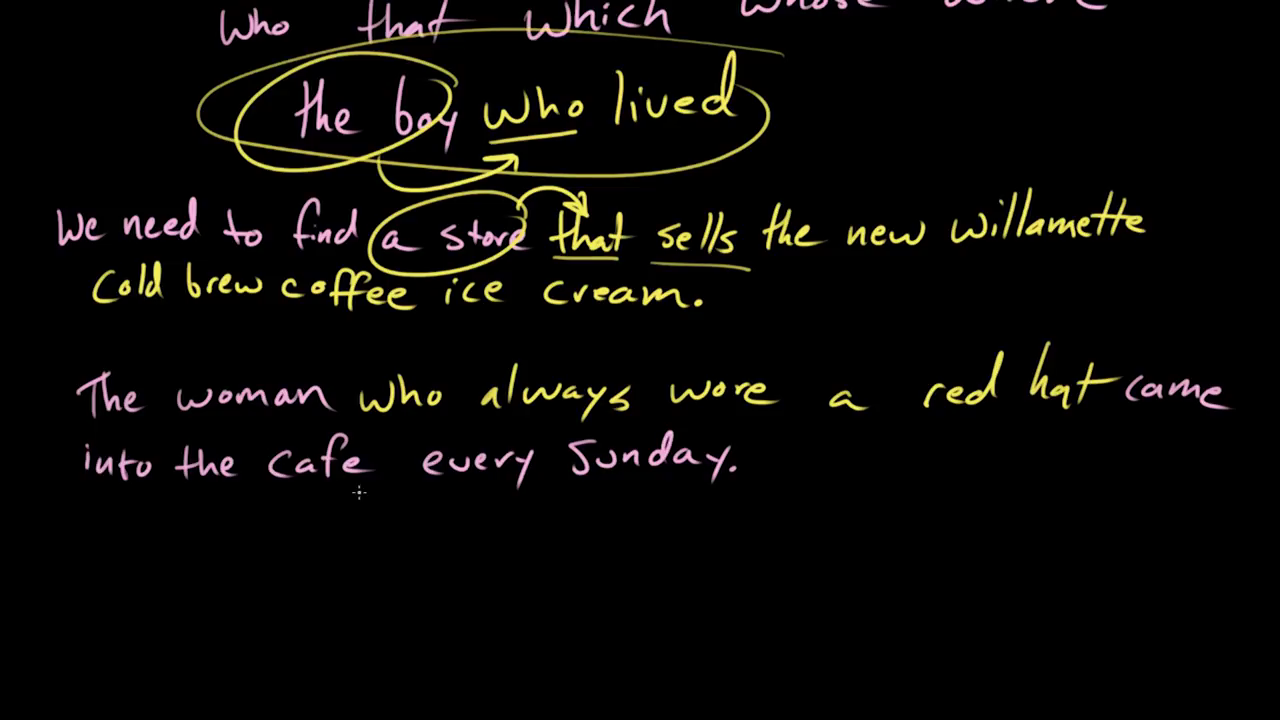 who that which whose where
the boy who lived
We need to find a store that sells the new willamette
Cold brew coffee ice cream.
The woman who always wore a red hat came
into the cafe every Sunday.